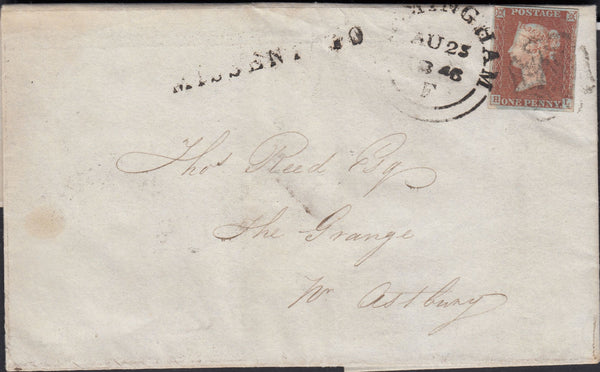 MISSENT TO
MINGHAM
AU 25
1846
F
POSTAGE
ONE PENNY
Thos Reed Esq
The Grange
Nr Astbury